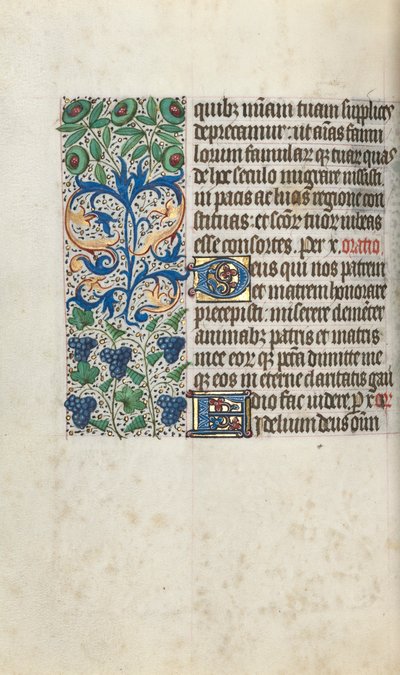 quibz miam tuam supplices
deprecamur: ut aias famu
lorum famular qz tuar quas
de hoc seculo migrare iussisti
in pacis ac lucis regione con
stituas: et scor tuor iubeas
esse consortes. Per x. oratio
Deus qui nos patrem
et matrem honorare
precepisti: miserere clementer
animabz patris et matris
mee eorqz pcta dimitte me
qz eos in eterne claritatis gau
dio fac videre p x or
Fidelium deus oim